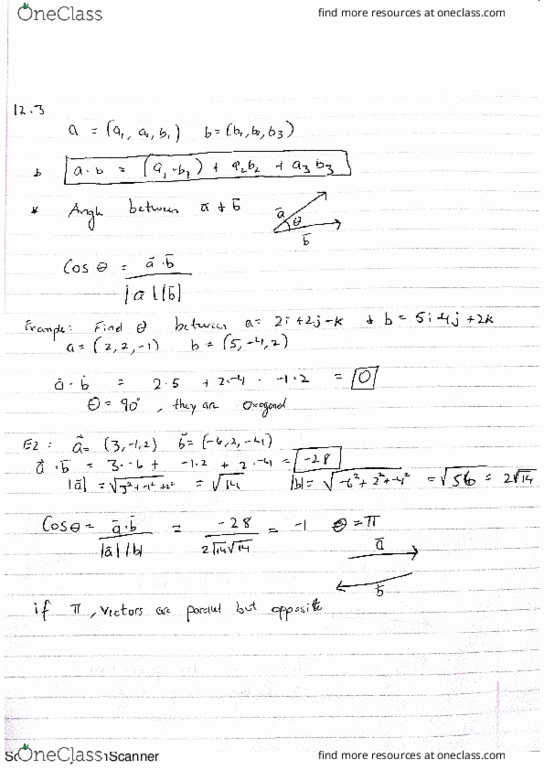 OneClass find more resources at oneclass.com
12.3
a = (a₁, a₂, b₁) b = (b₁, b₂, b₃)
a · b = (a₁ · b₁) + a₂b₂ + a₃b₃
* Angle between a̅ + b̅
a̅ θ
b̅
Cos θ = a̅ · b̅
|a| |b̅|
Example: Find θ between a = 2i + 2j - k + b = 5i - 4j + 2k
a = (2, 2, -1) b = (5, -4, 2)
a · b = 2·5 + 2·-4 · -1·2 = 0
θ = 90°, they are orogonal
E2: a⃗ = (3, -1, 2) b⃗ = (-6, 2, -4)
a⃗ · b̅ = 3·-6 + -1·2 + 2·-4 = -28
|a̅| = √3²+-1²+2² = √14 |b| = √-6²+2²+-4² = √56 = 2√14
Cos θ = a̅·b̅ = -28 = -1 θ = π
|a̅| |b| 2√14√14
a̅
b̅
if π, vectors are parallel but opposite
OneClass Scanner find more resources at oneclass.com